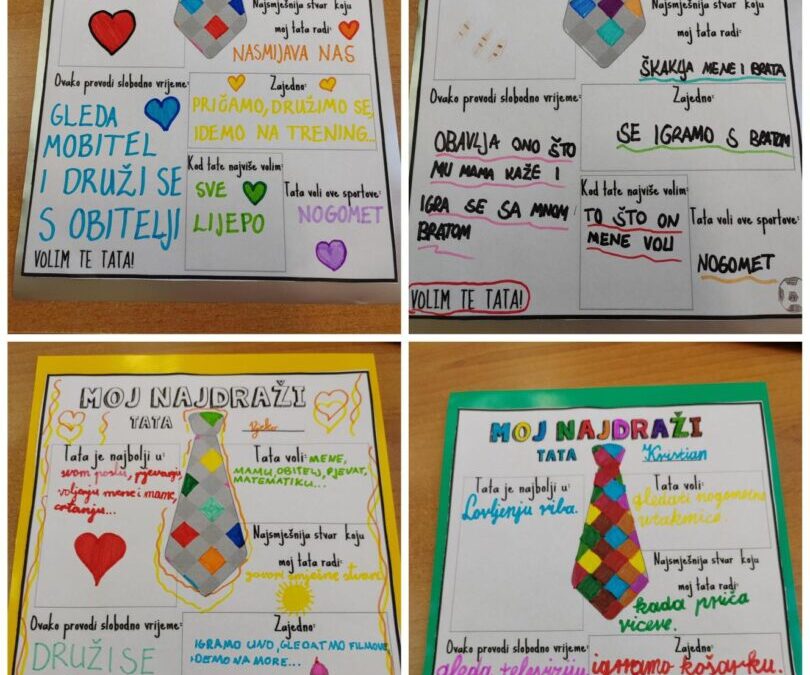 Najsmješnija stvar koju
moj tata radi:
NASMIJAVA NAS
Ovako provodi slobodno vrijeme:
GLEDA
MOBITEL
I DRUŽI SE
S OBITELJI
Zajedno:
PRIČAMO, DRUŽIMO SE,
IDEMO NA TRENING...
Kod tate najviše volim:
SVE
LIJEPO
Tata voli ove sportove:
NOGOMET
VOLIM TE TATA!
Najsmješnija stvar koju
moj tata radi:
ŠKAKLJA MENE I BRATA
Ovako provodi slobodno vrijeme:
OBAVLJA ONO ŠTO
MU MAMA KAŽE I
IGRA SE SA MNOM
BRATOM
Zajedno:
SE IGRAMO S BRATOM
Kod tate najviše volim:
TO ŠTO ON
MENE VOLI
Tata voli ove sportove:
NOGOMET
VOLIM TE TATA!
MOJ NAJDRAŽI
TATA
Tata je najbolji u:
svom poslu, pjevanju,
voljenju mene i mame,
crtanju...
Tata voli: MENE,
MAMU, OBITELJ, PJEVAT,
MATEMATIKU...
Najsmješnija stvar koju
moj tata radi:
govori smješne stvari
Ovako provodi slobodno vrijeme:
DRUŽI SE
Zajedno:
IGRAMO UNO, GLEDATMO FILMOVE,
IDEMO NA MORE...
MOJ NAJDRAŽI
TATA Kristian
Tata je najbolji u:
Lovljenju riba.
Tata voli:
gledati nogometne
utakmice.
Najsmješnija stvar koju
moj tata radi:
kada priča
viceve.
Ovako provodi slobodno vrijeme:
gleda televiziju
Zajedno:
igramo košarku.